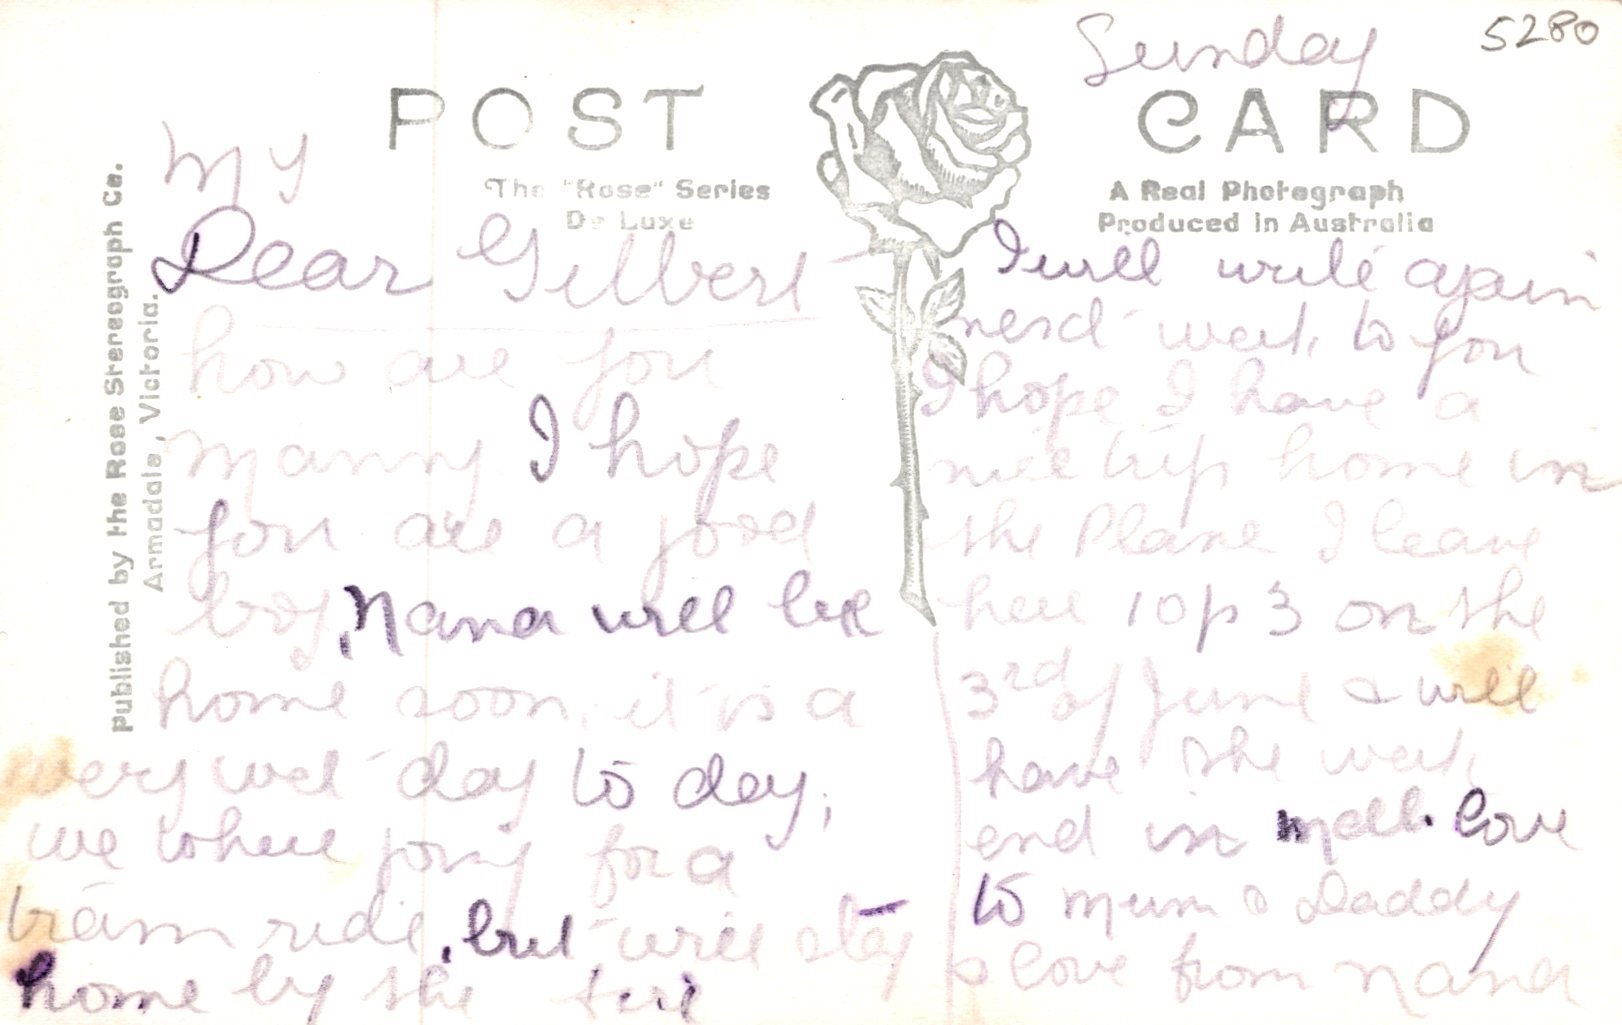 5280
Sunday
POST CARD
The "Rose" Series
De Luxe
A Real Photograph
Produced in Australia
Published by the Rose Stereograph Co.
Armadale, Victoria.
My
Dear Gilbert
how are you
manny I hope
you are a good
boy, Nana will be
home soon, it is a
very wet day to day,
we where going for a
tram ride, but will stay
home by the fire
I will write again
next week to you
I hope I have a
nice trip home in
the Plane I leave
here 10 p 3 on the
3rd of June & will
have the week
end in Melb. love
to Mum & Daddy
& love from Nana